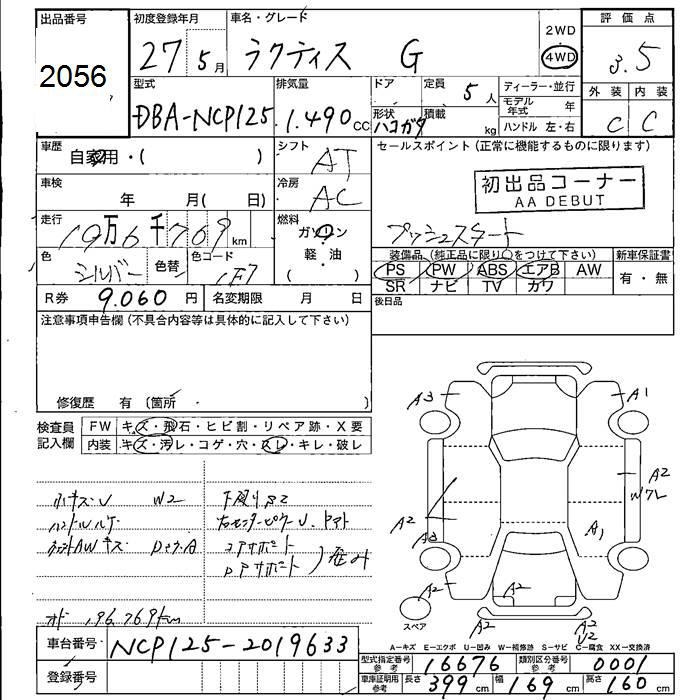 出品番号
2056
初度登録年月
27 5月
車名・グレード
ラクティス G
2WD
4WD
評価点
3.5
外装 内装
C C
型式
DBA-NCP125
排気量
1.490 CC
ドア
形状
ハコガタ
定員 5人
積載 kg
ディーラー・並行
モデル年式 年
ハンドル 左・右
車歴
自家用・( )
車検
年 月( 日)
走行
19万6千769 km
色
シルバー
色替
色コード
1F7
シフト
AT
冷房
AC
燃料
ガソリン
軽・油
( )
セールスポイント(正常に機能するものに限ります)
初出品コーナー
AA DEBUT
プッシュスタート
装備品(純正品に限り〇をつけて下さい)
PS PW ABS エアB AW
SR ナビ TV カワ
新車保証書
有・無
後日品
R券 9.060 円
名変期限 月 日
注意事項申告欄(不具合内容等は具体的に記入して下さい)
修復歴 有〔箇所 〕
検査員記入欄
FW キズ・飛石・ヒビ割・リペア跡・X要
内装 キズ・汚レ・コゲ・穴・スレ・キレ・破レ
W2
オド 196.769km
車台番号 NCP125-2019633
登録番号
A3
A1
A2
A2
A2
A1
A2
A2
A2
A2
A2
スペア
A-キズ E-エクボ U-凹み W-補修跡 S-サビ C-腐食 XX-交換済
型式指定番号 参考 16676
類別区分番号 参考 0001
車庫証明用 参考 長さ 399 cm 幅 169 cm 高さ 160 cm